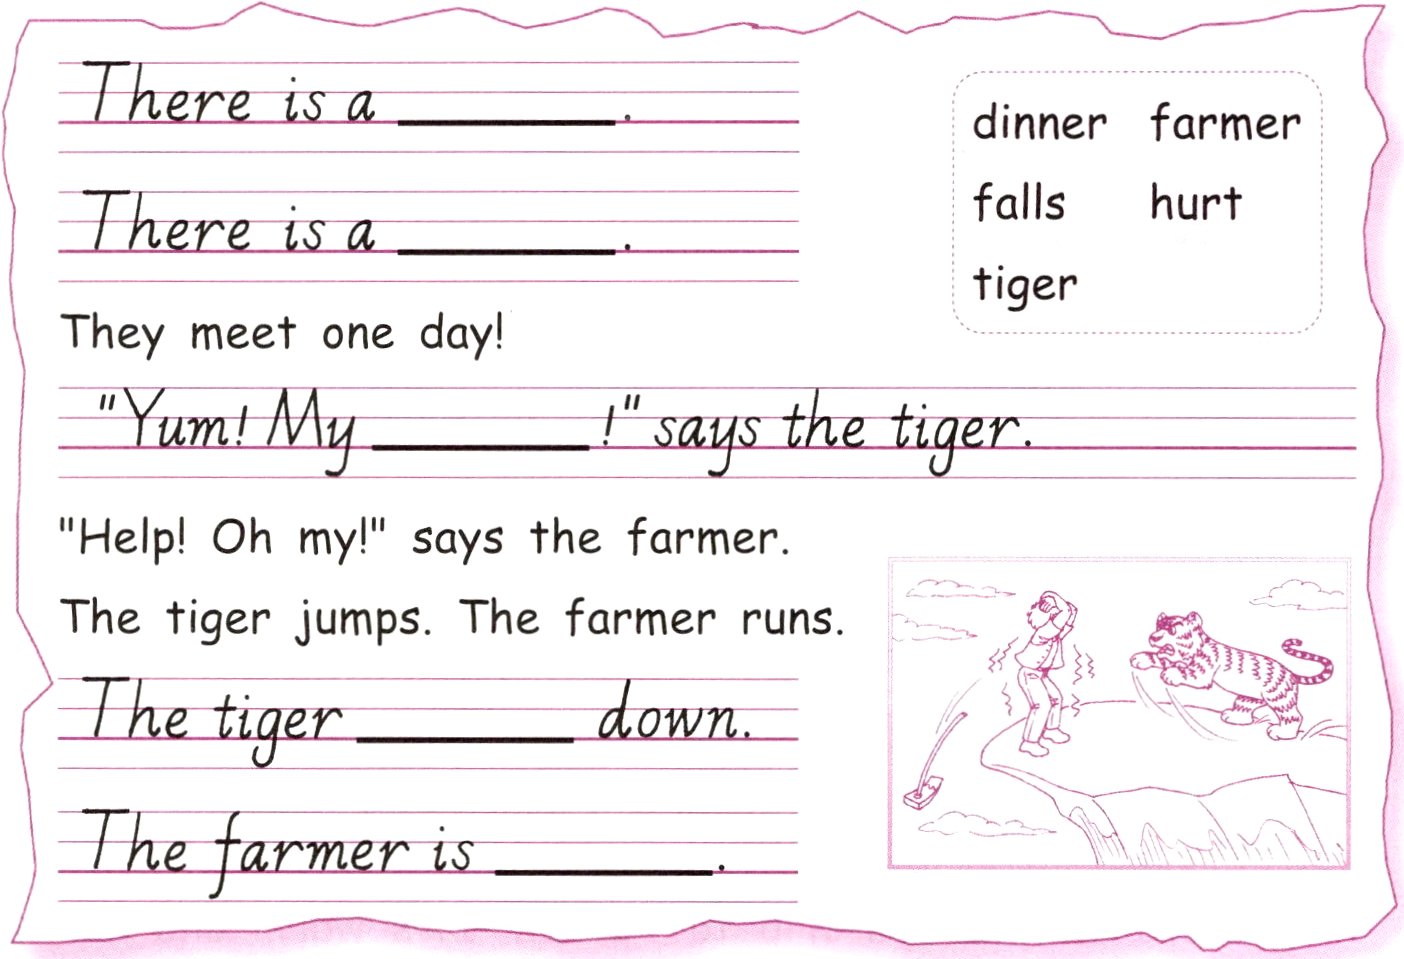 There is a ________.
There is a ________.
They meet one day!
"Yum! My ________!" says the tiger.
"Help! Oh my!" says the farmer.
The tiger jumps. The farmer runs.
The tiger ________ down.
The farmer is ________.
dinner farmer
falls hurt
tiger